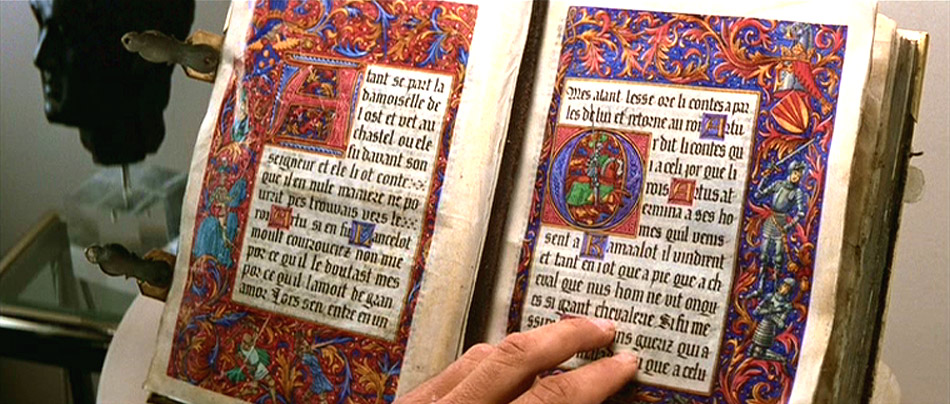 Atant se part la
damoiselle de
l ost et vet au
chastel ou ele
fu davant son
seigneur et ele li ot conte
que il en nule maniere ne po
urat pes trouvais vers le
roi Artu si en fu Lancelot
moult courouciez non mie
por ce qu il le doutast mes
por ce qu il l amoit de gran
amor Lors sen entre en un
Mes atant lesse ore li contes a par
ler de lui et retorne au roi Artu
Or dit li contes qu
a cel jor que li
rois Artus at
ermina a ses ho
mes quil venis
sent a Kamaalot il vindrent
et tant en i ot que a pie que a ch
eval que nus hom ne vit onqu
es si grant chevalerie Si fu me
ssire ins gueriz qui a
i que a celu